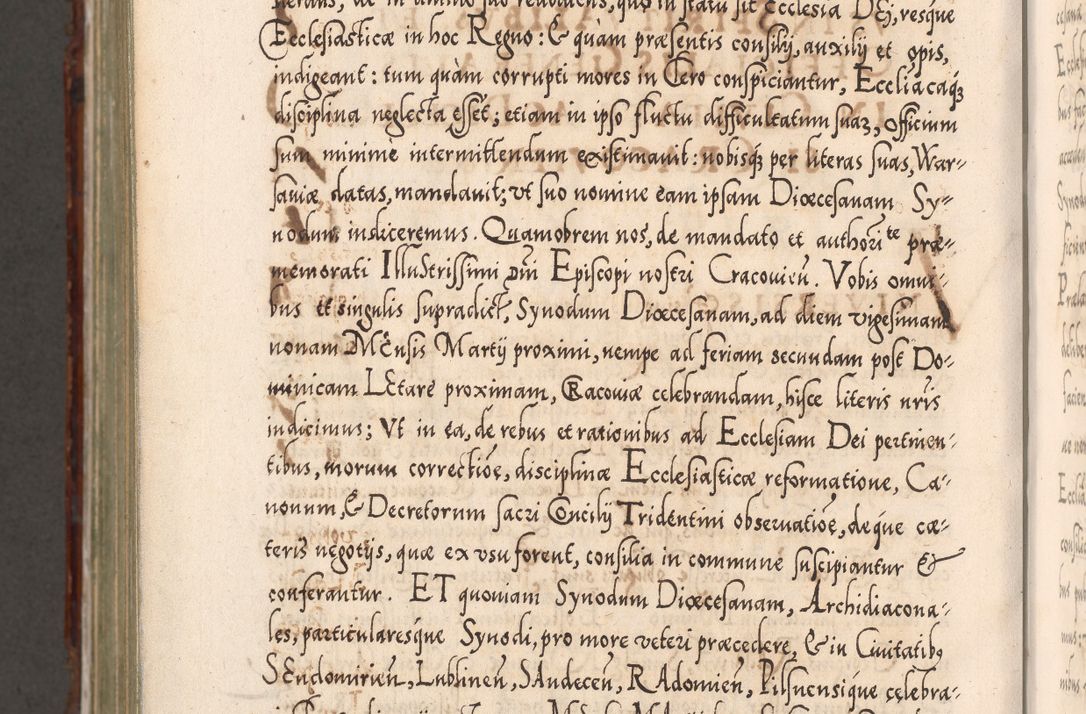 nerans, ac in animo suo reuoluens, quo in statu sit Ecclesia DEj, resque
Ecclesiasticæ in hoc Regno: & quàm præsentis consilij, auxilij et opis,
indigeant: tum quàm corrupti mores in Clero conspiciantur, Eccliacaq3
disciplina neglecta esset; etiam in ipso fluctu difficultatum suaz, officium
sum minimè intermittendum existimauit: nobisq3 per literas suas, War-
sauiæ datas, mandauit; vt suo nomine eam ipsam Diœcesanam Sy-
nodum indiceremus. Quamobrem nos, de mandato et authorite præ-
memorati Illustrissimi Dñi Episcopi nostri Cracouien. Vobis omni-
bus et singulis supradict, Synodum Diœcesanam, ad diem vigesimam
nonam MEnsis Martij proximi, nempe ad feriam secundam post Do-
minicam LEtare proximam, Cracouiæ celebrandam, hisce literis nris
indicimus; Vt in ea, de rebus et rationibus ad Ecclesiam Dei pertinen-
tibus, morum correctiõe, disciplinæ Ecclesiasticæ reformatione, Ca-
nonum, & Decretorum sacri Concilij Tridentini obseruatiõe, deque cæ-
teris negotijs, quæ ex vsu forent, consilia in commune suscipiantur &
conferantur. ET quoniam Synodum Diœcesanam, Archidiacona-
les, particularesque Synodi, pro more veteri præcedere, & in Ciuitatib9
SEndomirien, Lublinen, SAndecen, RAdomien, Pilsnensique celebra-